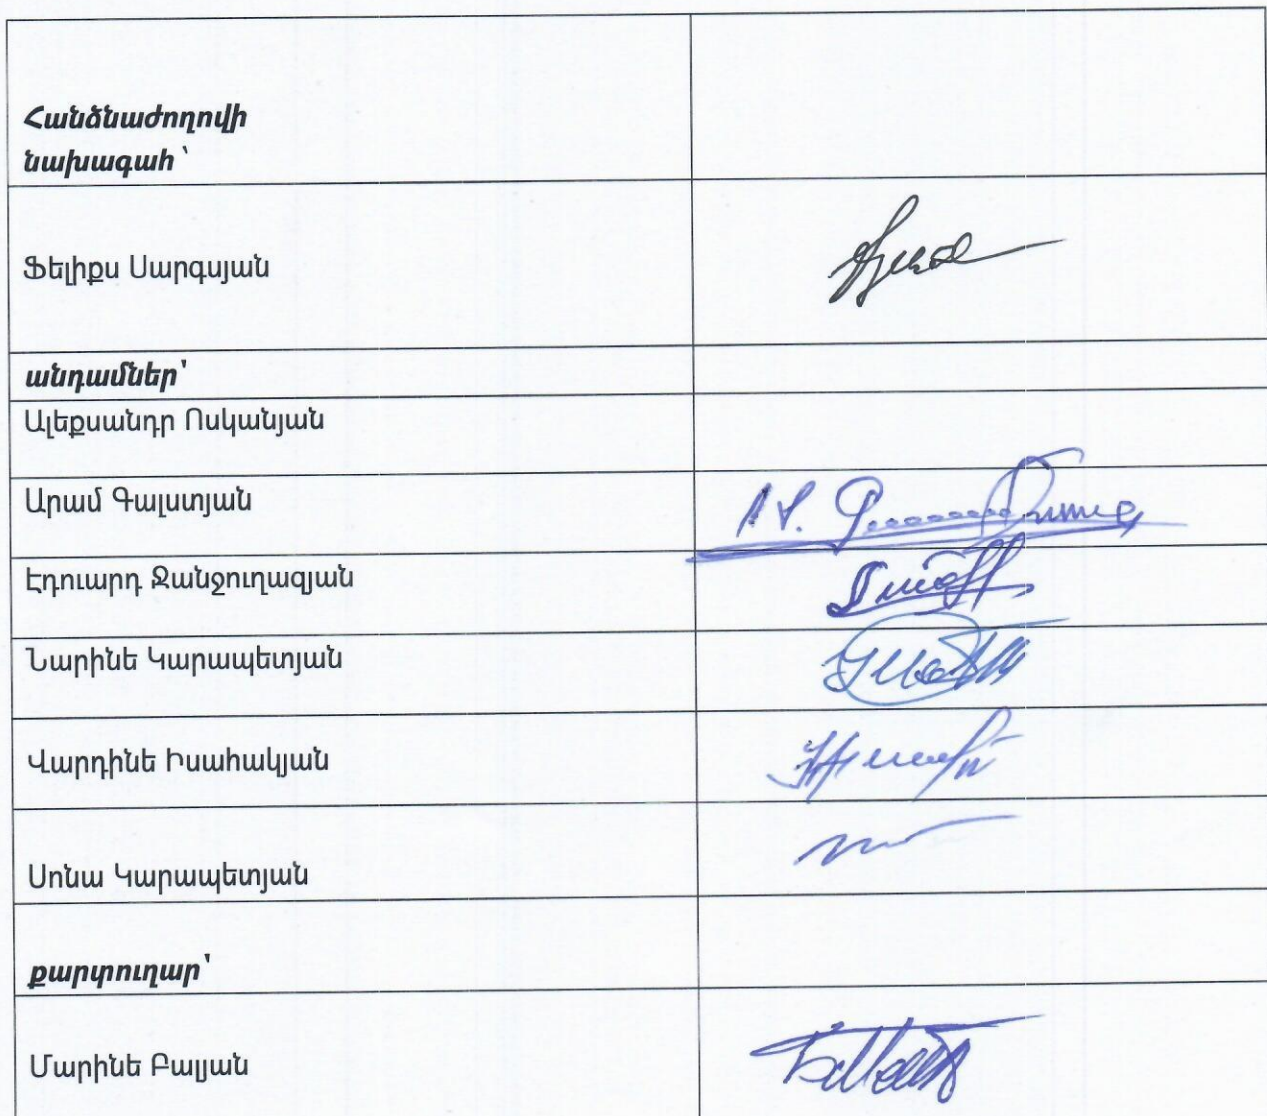 Հանձնաժողովի
նախագահ՝
Ֆելիքս Սարգսյան
անդամներ՝
Ալեքսանդր Ոսկանյան
Արամ Գալստյան
Էդուարդ Ջանջուղազյան
Նարինե Կարապետյան
Վարդինե Իսահակյան
Սոնա Կարապետյան
քարտուղար՝
Մարինե Բալյան